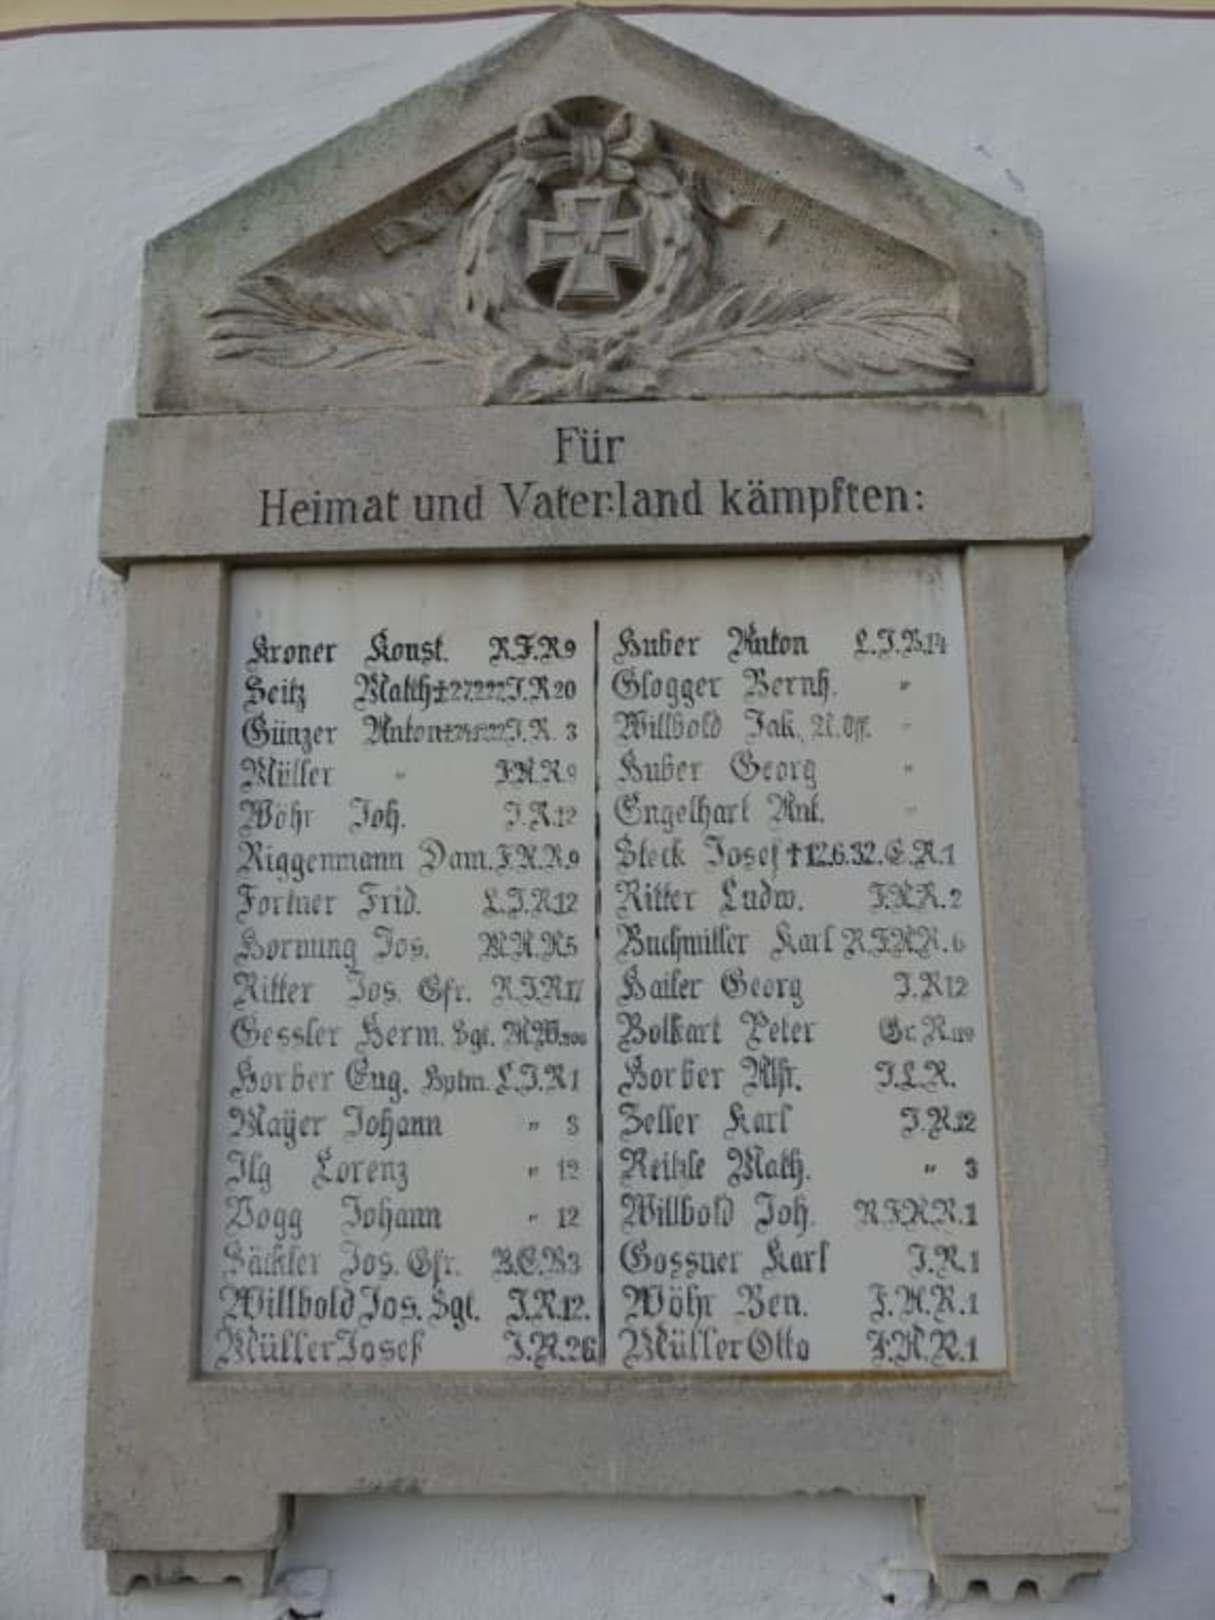 Für
Heimat und Vaterland kämpften:
Kroner Konst. R.F.R 9
Seitz Math † 27.2.22 I.R 20
Günzer Anton I.R. 3
Müller " F.A.R 9
Wöhr Joh. I.R.12
Riggenmann Dam. F.R.R.9
Fortner Frid. L.I.R.12
Hornung Jos.
Ritter Jos. Gfr. R.I.R.17
Gessler Herm. Sgt.
Horber Eug. Hptm. L.I.R 1
Mayer Johann " 3
Ilg Lorenz " 12
Vogg Johann " 12
Säckler Jos. Gfr.
Willbold Jos. Sgt. I.R.12.
Müller Josef I.R.26
Huber Anton L.I.B.14
Glogger Bernh. "
Willbold Jak., U.Off. "
Huber Georg "
Engelhart Ant. "
Steck Josef † 12.6.32. E.R.1
Ritter Ludw. F.A.R. 2
Buchmiller Karl R.F.A.R. 6
Hailer Georg I.R 12
Bolkart Peter Gr.R.
Horber Alfr. I.L.R.
Zeller Karl I.R.12
Reitzle Math. " 3
Willbold Joh. R.F.A.R.1
Gossner Karl I.R.1
Wöhr Ben. F.A.R.1
Müller Otto F.A.R.1